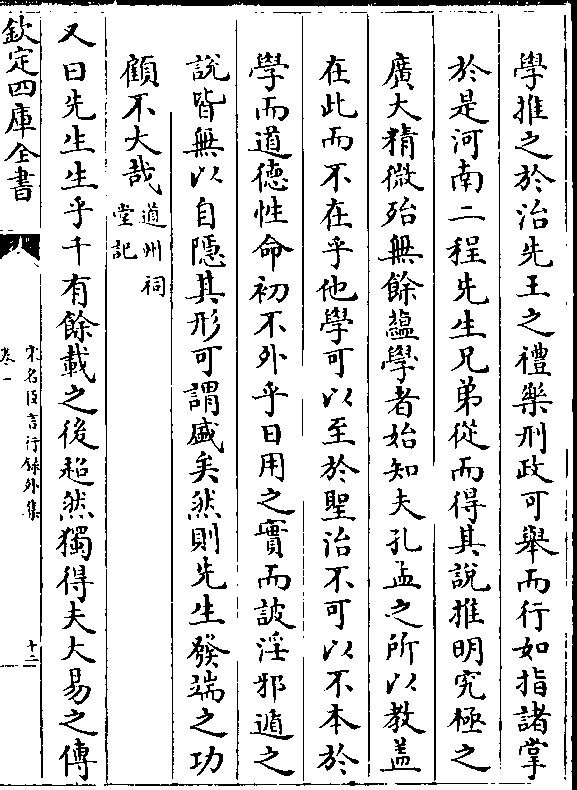 學推之於治先王之禮樂刑政可舉而行如指諸掌
於是河南二程先生兄弟從而得其說推明究極之
廣大精微殆無餘蘊學者始知夫孔孟之所以教蓋
在此而不在乎他學可以至於聖治不可以不本於
學而道德性命初不外乎日用之實而詖淫邪遁之
說皆無以自隱其形可謂盛矣然則先生發端之功
顧不大哉道州祠
堂記
又曰先生生乎千有餘載之後超然獨得夫大易之傳
欽定四庫全書
宋名臣言行録外集
卷一
十二